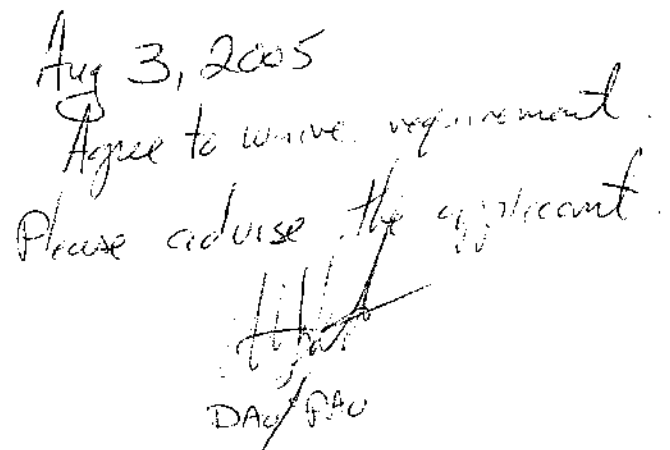 Aug 3, 2005
Agree to waive requirement.
Please advise the applicant.
DAO/PAO